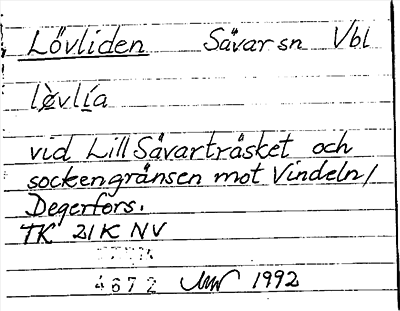 Lövliden Sävar sn Vbl
lòvlía
vid Lill Sävarträsket och
sockengränsen mot Vindeln/
Degerfors.
TK 21K NV
4672 1992